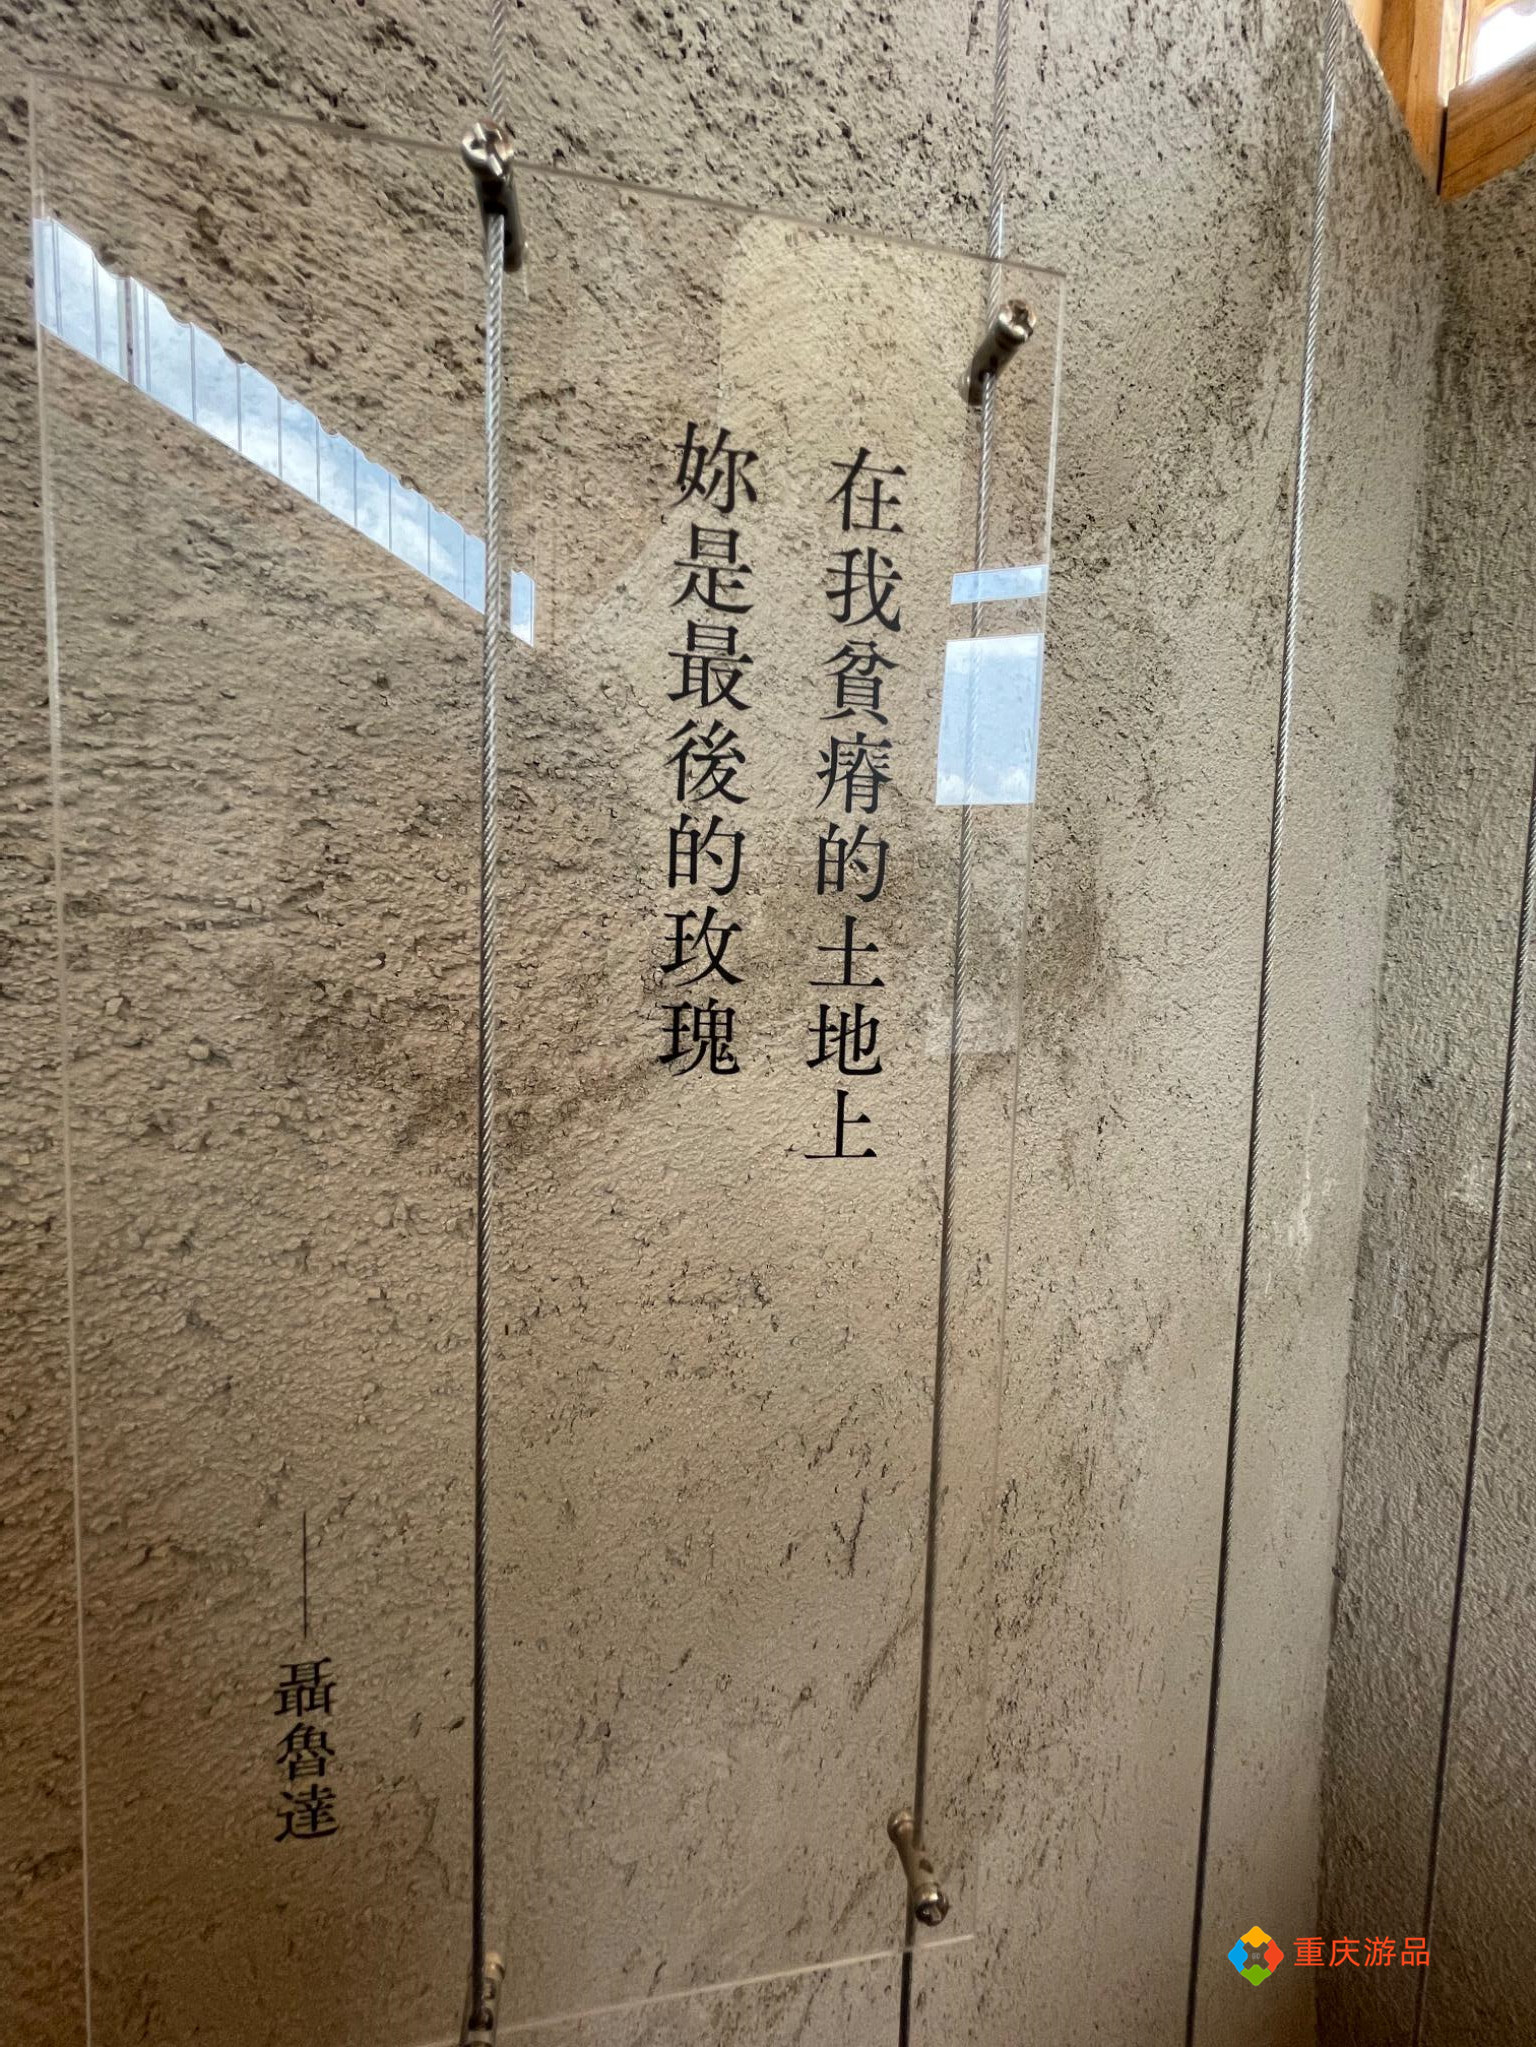 在我貧瘠的土地上
妳是最後的玫瑰
——聶魯達
重庆游品